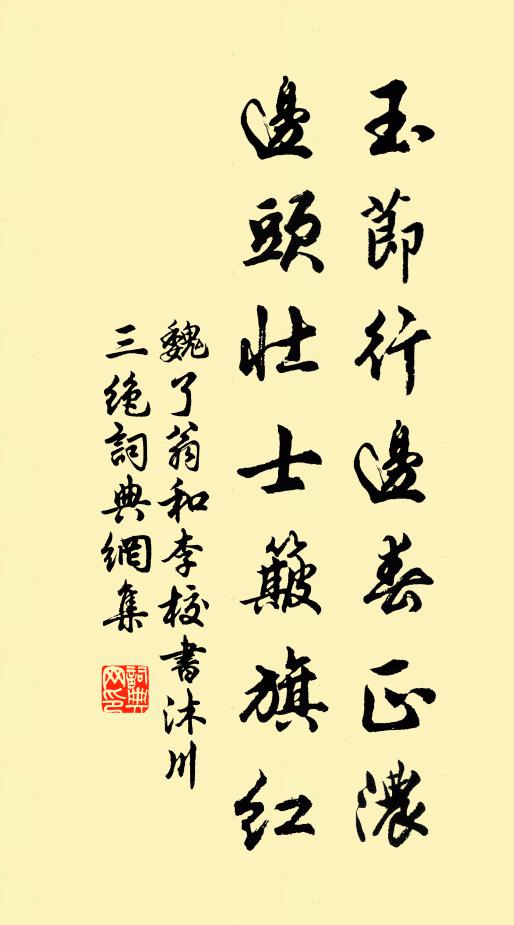 玉節行邊春正濃
邊頭壯士簸旗紅
魏了翁和李校書沐川
三绝詞典網集
詞典
网印